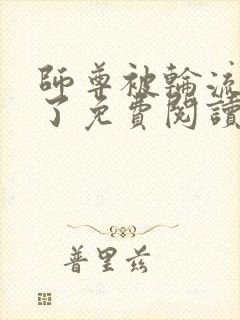 師尊被輪流
了免費閱讀
普里兹